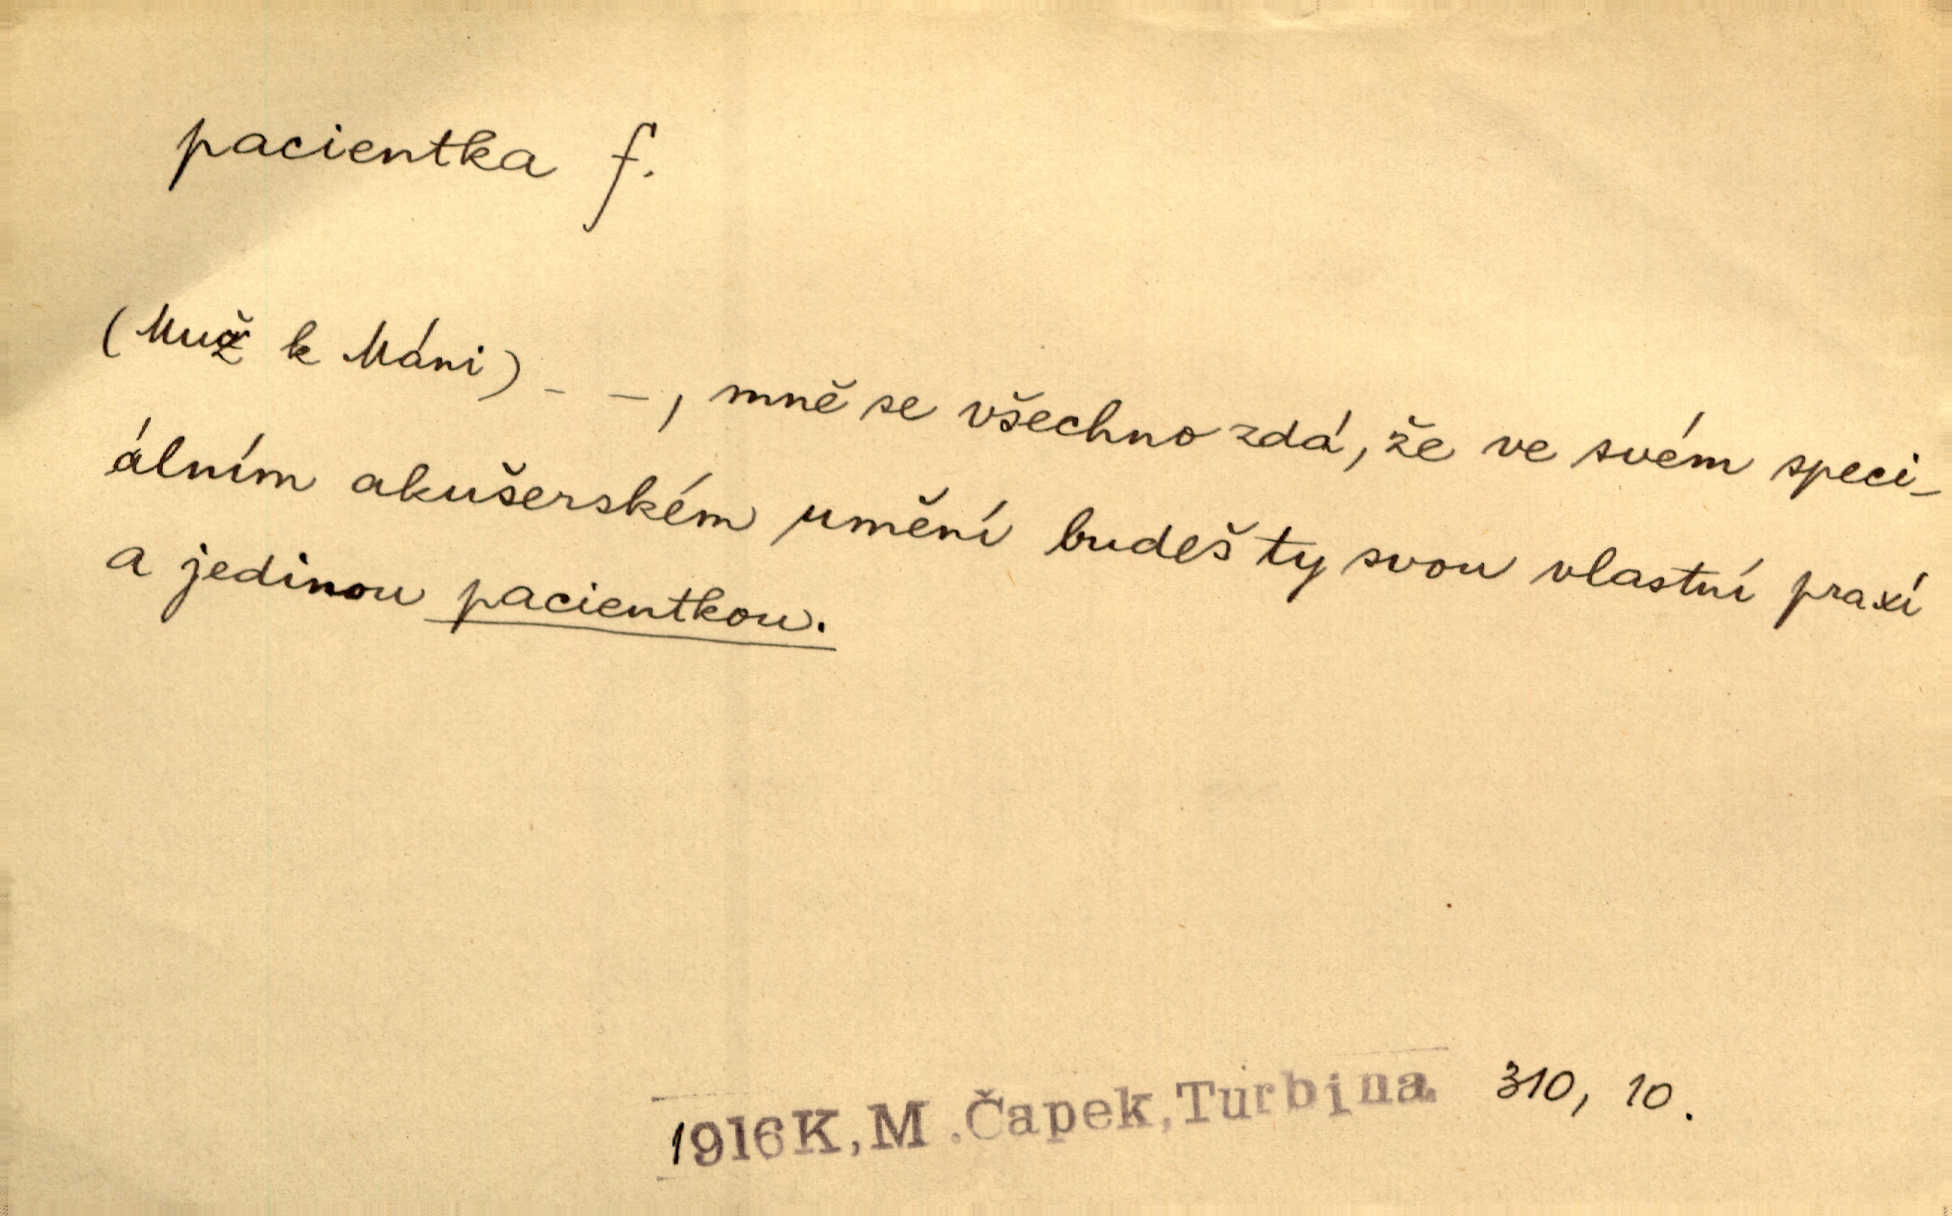 pacientka f.
(Muž k Máni) - -, mně se všechno zdá, že ve svém speci-
álním akušerském umění budeš ty svou vlastní praxí
a jedinou pacientkou.
1916 K, M. Čapek, Turbina. 310, 10.